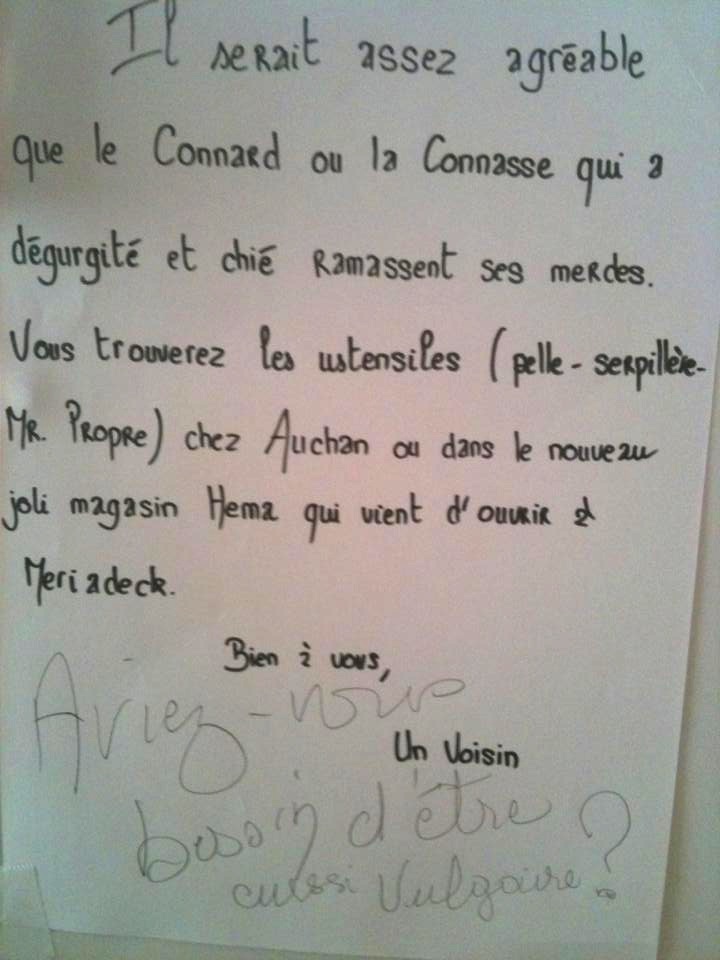 Il serait assez agréable
que le Connard ou la Connasse qui a
dégurgité et chié ramassent ses merdes.
Vous trouverez les ustensiles (pelle - serpillère-
Mr. Propre) chez Auchan ou dans le nouveau
joli magasin Hema qui vient d'ouvrir à
Meriadeck.
Bien à vous,
Un Voisin
Aviez-vous
besoin d'être
aussi Vulgaire ?